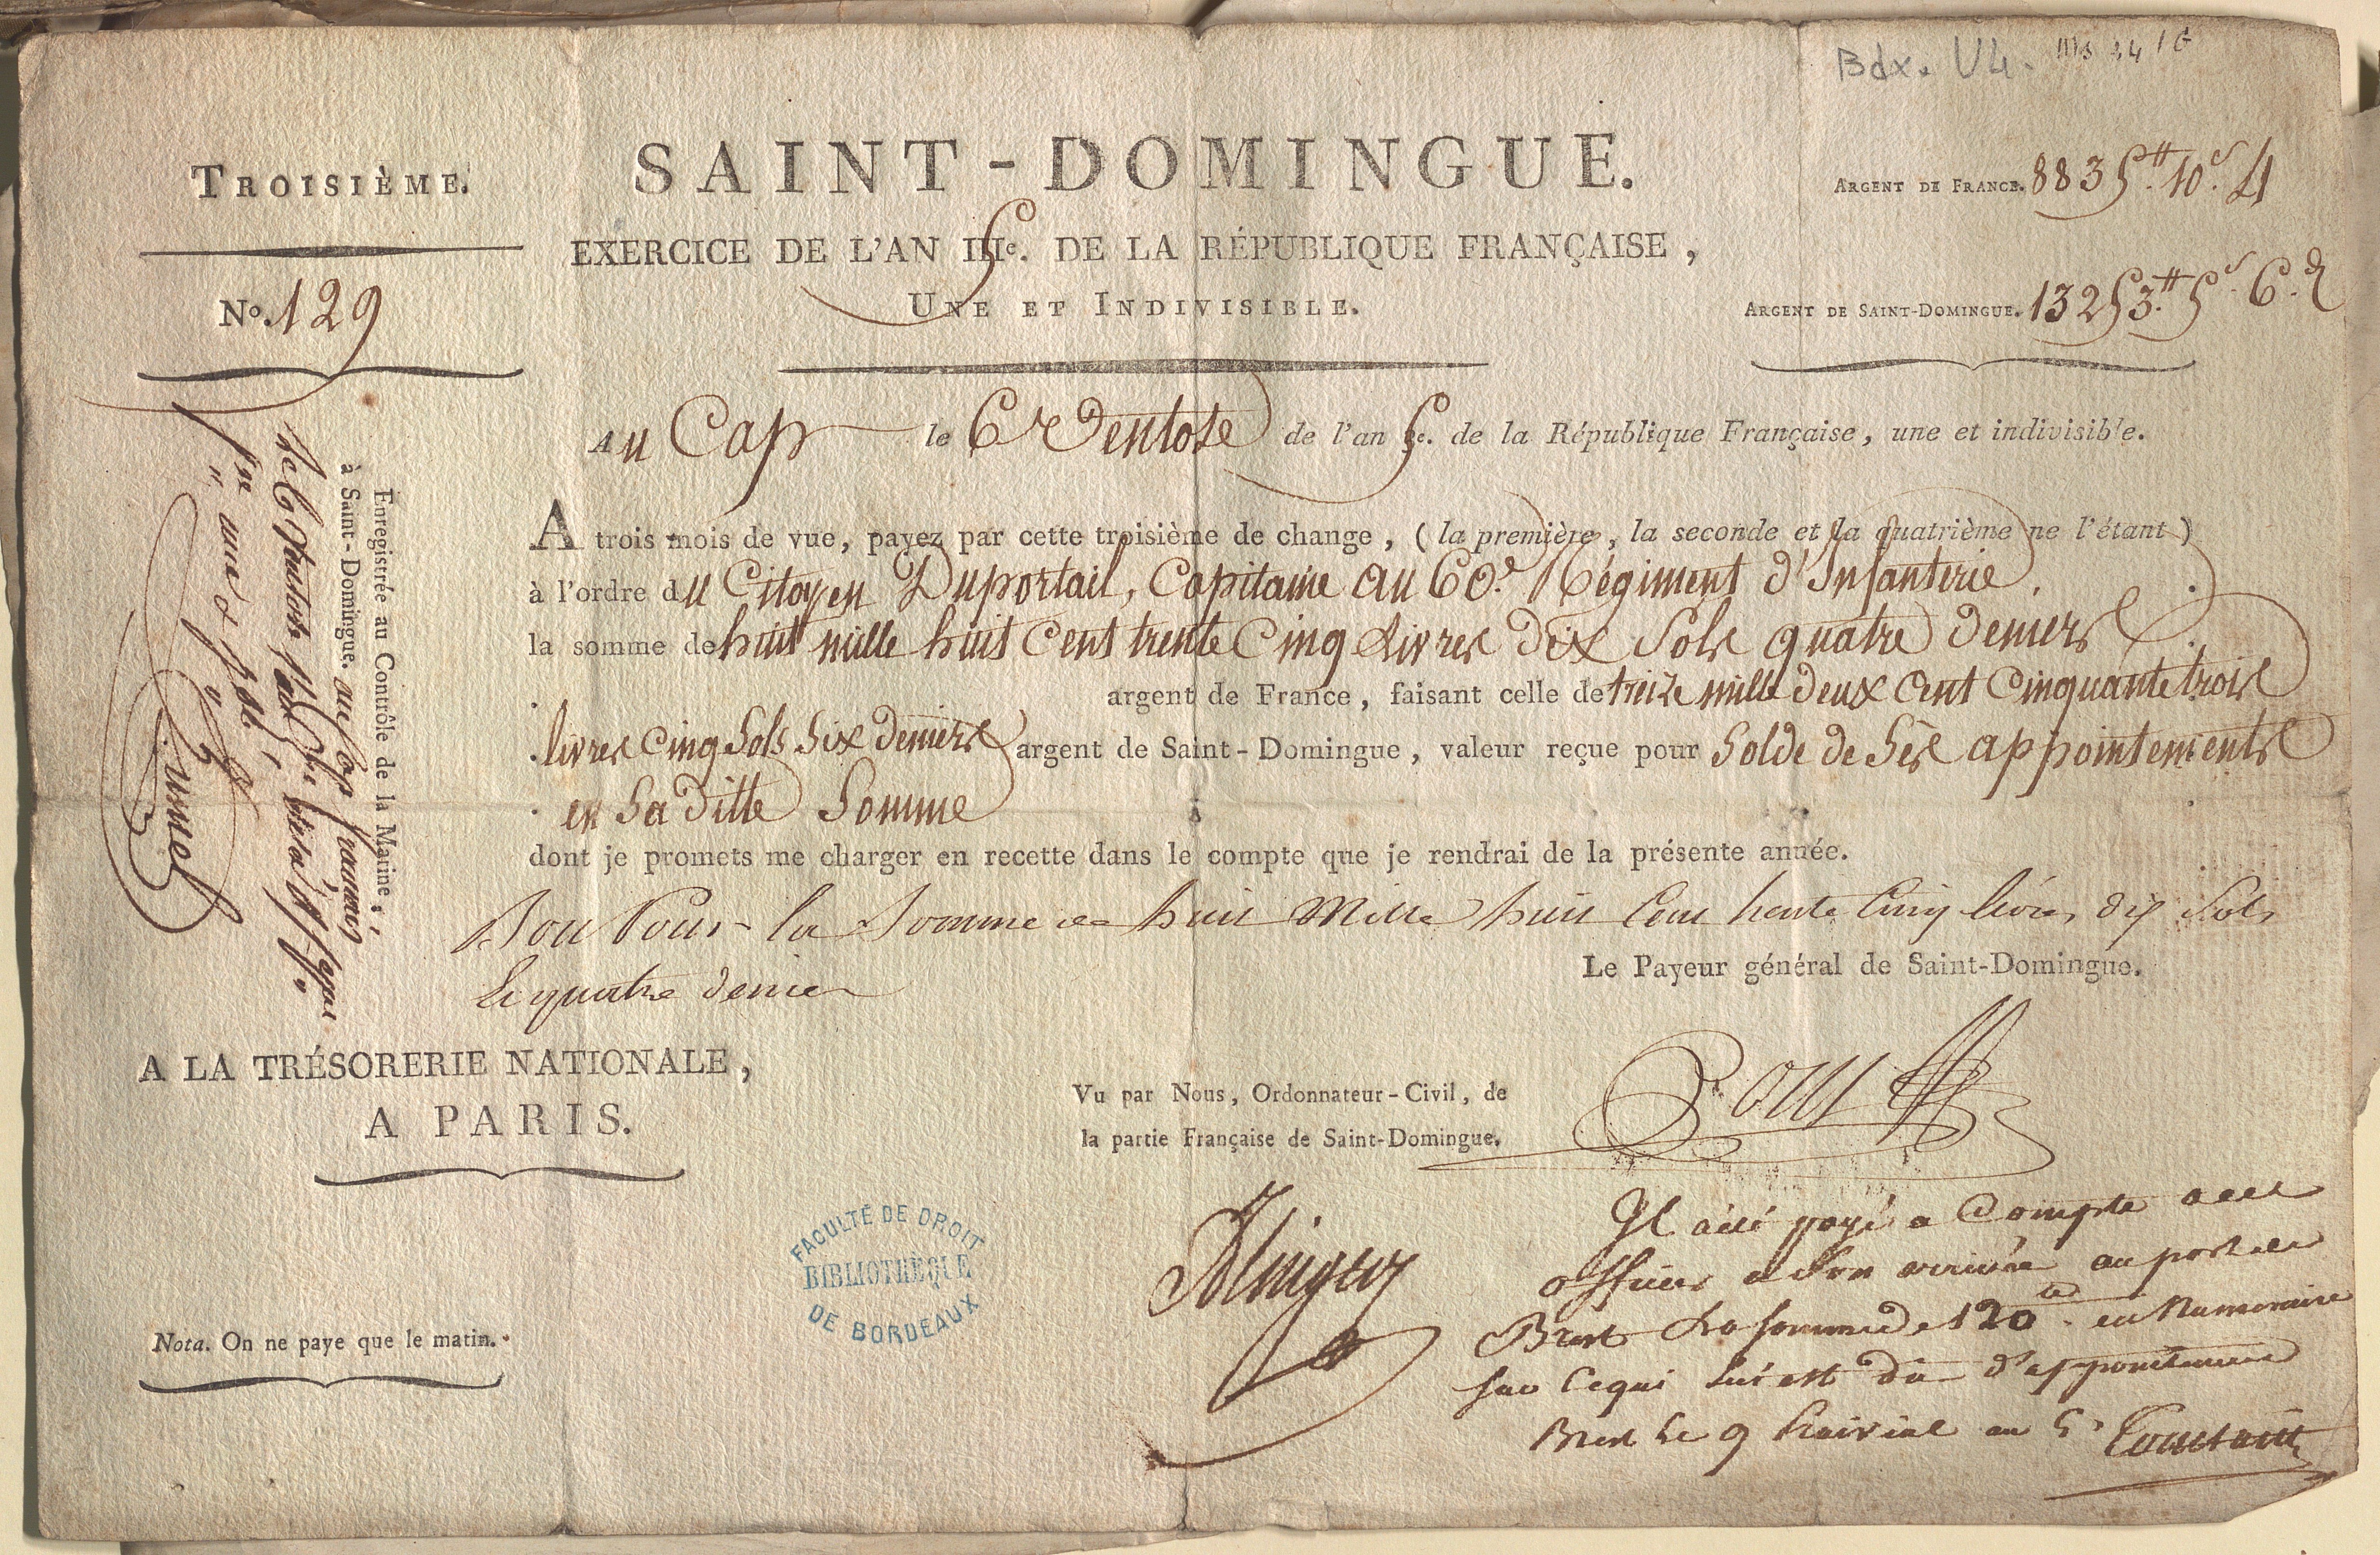 Bdx. U4. Ms 34 / 6
TROISIÈME.
No. 129
SAINT-DOMINGUE.
EXERCICE DE L'AN 5e. DE LA RÉPUBLIQUE FRANÇAISE,
UNE ET INDIVISIBLE.
ARGENT DE FRANCE. 8835tt. 10s. 4
ARGENT DE SAINT-DOMINGUE. 13253tt. 5s. 6.d
Au Cap le 6 Ventose de l'an 5e. de la République Française, une et indivisible.
A trois mois de vue, payez par cette troisième de change, (la première, la seconde et la quatrième ne l'étant)
à l'ordre du Citoyen Duportail, Capitaine au 60.e Régiment d'Infanterie.
la somme de huit mille huit Cent trente Cinq Livres dix Sols quatre deniers
argent de France, faisant celle de treize mille deux Cent Cinquante trois
livres Cinq Sols Six deniers argent de Saint-Domingue, valeur reçue pour Solde de Ses appointements
en Sa ditte Somme
dont je promets me charger en recette dans le compte que je rendrai de la présente année.
Bon Pour la Somme de huit Mille huit Cent trente Cinq livres dix Sols
et quatre denier
Le Payeur général de Saint-Domingue.
Enregistrée au Contrôle de la Marine,
à Saint-Domingue. au Cap français
le 6 Ventose
A LA TRÉSORERIE NATIONALE,
A PARIS.
Vu par Nous, Ordonnateur-Civil, de
la partie Française de Saint-Domingue.
FACULTÉ DE DROIT
BIBLIOTHÈQUE
DE BORDEAUX
Nota. On ne paye que le matin.
Il a été payé a Compte a cet
officier a Son arrivée au port de
Brest La somme de 120tt. en Numeraire
sur Ce qui lui est dû d'appointemens
Brest le 9 Prairial an 5e